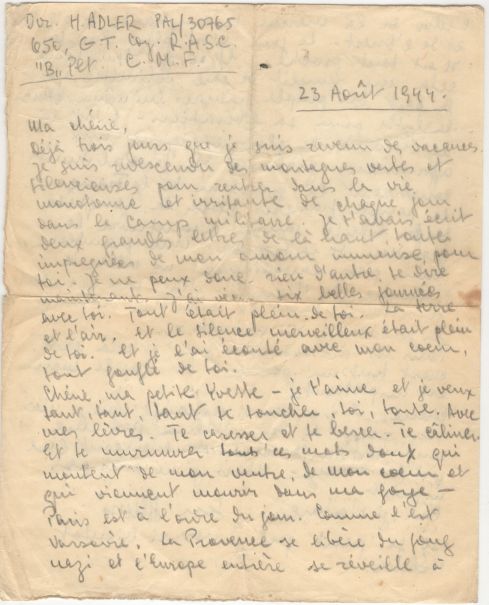 Dvr. H. ADLER PAL/30765
650, G T. Coy. R.A.S.C.
"B„ Plt. C. M. F.
23 Août 1944.
Ma chérie,
Déjà trois jours que je suis revenu des vacances.
Je suis redescendu des montagnes vertes et
silencieuses pour rentrer dans la vie
monotonne et irritante de chaque jour
dans le camp militaire. Je t'avais écrit
deux grandes lettres de là haut, toutes
impregnées de mon amour immense pour
toi. Je ne peux donc rien d'autre te dire
maintenant. J'ai six belles journées
avec toi. Tout était plein de toi. La terre
et l'air, et le silence merveilleux était plein
de toi. Et je l'ai écouté avec mon coeur,
tout gonflé de toi.
Chérie, ma petite Yvette – je t'aime et je veux
tant, tant, tant te toucher, toi, toute. Avec
mes lèvres. Te caresser et te bercer. Te câliner
Et te murmurer tous ces mots doux qui
montent de mon ventre, de mon coeur et
qui viennent mourir dans ma gorge –
Paris est à l'ordre du jour. Comme l'est
Varsovie. La Provence se libère du joug
nazi et l'Europe entière se réveille à